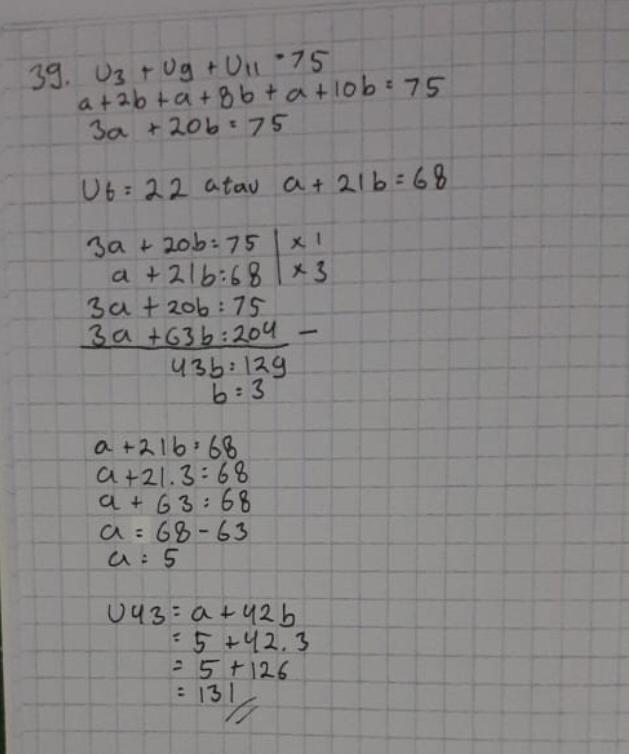 39. U3 + U9 + U11 = 75
a+2b+a+8b+a+10b = 75
3a + 20b = 75
U6 = 22 atau a + 21b = 68
3a + 20b = 75 | x 1
a + 21b = 68 | x 3
3a + 20b = 75
3a + 63b = 204 −
43b = 129
b = 3
a + 21b = 68
a + 21.3 = 68
a + 63 = 68
a = 68 - 63
a = 5
U43 = a + 42b
= 5 + 42.3
= 5 + 126
= 131